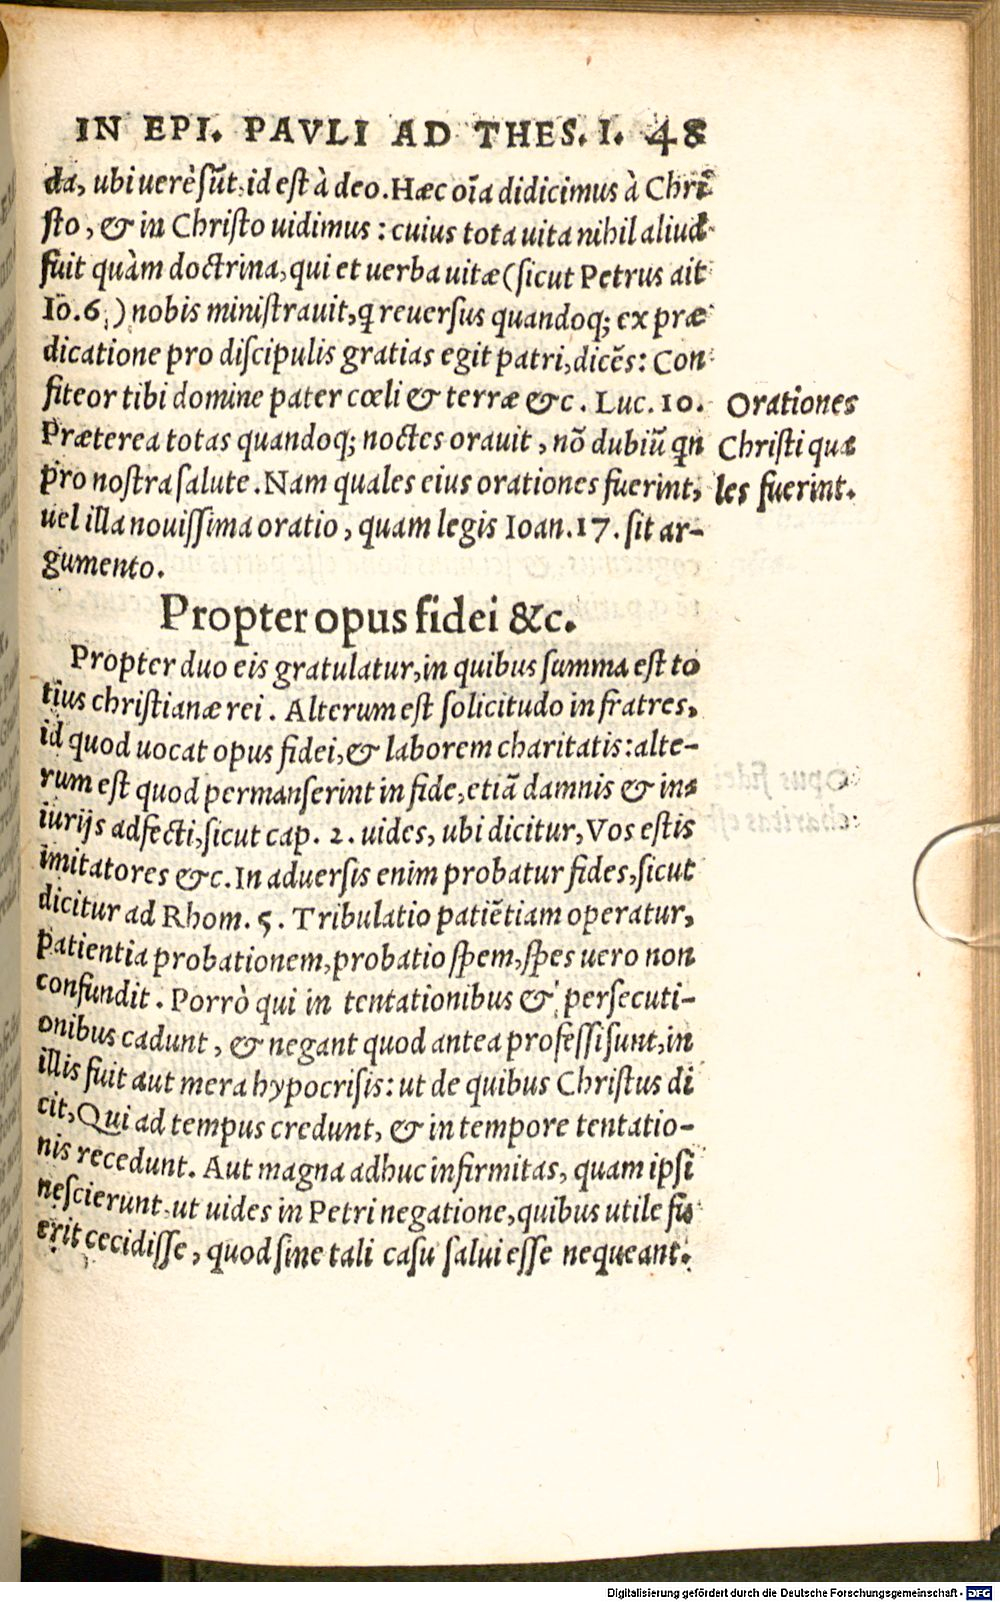 IN EPI. PAVLI AD THES. I. 48
da, ubi uerè sūt, id est à deo. Hæc oīa didicimus à Chri
sto, & in Christo uidimus : cuius tota uita nihil aliud
fuit quàm doctrina, qui et uerba uitæ (sicut Petrus ait
Io. 6.) nobis ministrauit, q reuersus quandoq; ex præ
dicatione pro discipulis gratias egit patri, dicēs: Con
fiteor tibi domine pater cœli & terræ &c. Luc. 10.
Præterea totas quandoq; noctes orauit, nō dubiū qn
pro nostra salute. Nam quales eius orationes fuerint,
uel illa nouissima oratio, quam legis Ioan. 17. sit ar-
gumento.
Orationes
Christi qua
les fuerint.
Propter opus fidei &c.
Propter duo eis gratulatur, in quibus summa est to
tius christianæ rei. Alterum est solicitudo in fratres,
id quod uocat opus fidei, & laborem charitatis: alte-
rum est quod permanserint in fide, etiā damnis & in
iurijs adfecti, sicut cap. 2. uides, ubi dicitur, Vos estis
imitatores &c. In aduersis enim probatur fides, sicut
dicitur ad Rhom. 5. Tribulatio patiētiam operatur,
patientia probationem, probatio spem, spes uero non
confundit. Porrò qui in tentationibus & persecuti-
onibus cadunt, & negant quod antea professi sunt, in
illis fuit aut mera hypocrisis: ut de quibus Christus di
cit, Qui ad tempus credunt, & in tempore tentatio-
nis recedunt. Aut magna adhuc infirmitas, quam ipsi
nescierunt, ut uides in Petri negatione, quibus utile fu
erit cecidisse, quod sine tali casu salui esse nequeant.
Digitalisierung gefördert durch die Deutsche Forschungsgemeinschaft - DFG